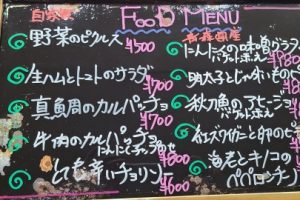 自家製
FOOD MENU
野菜のピクルス
¥500
生ハムとトマトのサラダ
¥700
真鯛のカルパッチョ
¥700
牛肉のカルパッチョ
¥800
辛いチョリソー
¥600
青森県産
にんにくの味噌グラ
バゲット添え
¥780
明太子とじゃがいもの
秋刀魚のアヒージョ
バゲット添え
紅ズワイガニと
海老とキノコの
ペペロンチーノ